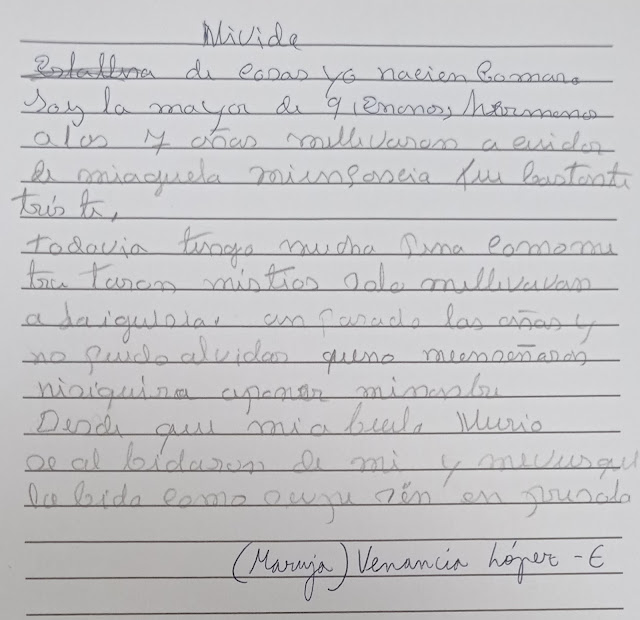 Mivida
de cosas yo nacien Comare
Soy la mayor de 9 hermanos
a los 7 años mellivaron a cuidar
de miaguela miinfancia fue bastante
triste,
todavia tengo mucha pena comome
trataron mistios solo mellevavan
alaiglesia. an pasado los años y
no puedo olvidar queno meenseñaron
nisiquira aponer minonbre
Desde que miabuela Murio
se albidaron de mi y mevusque
la bida como en
(Maruja) Venancia López - E